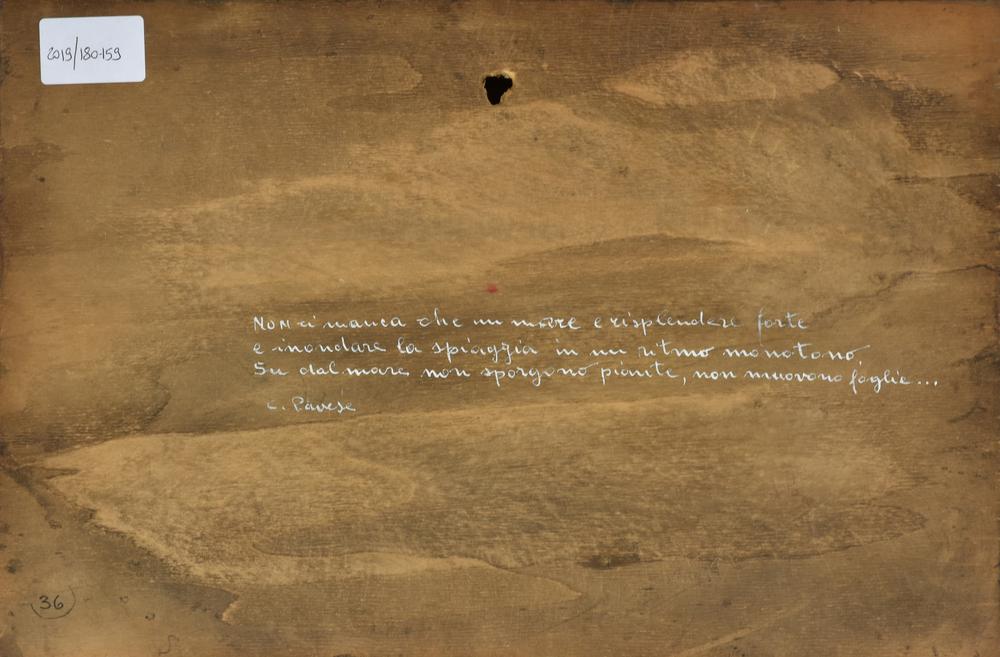 2019/180-159
Non ci manca che un mare e risplendere forte
e inondare la spiaggia in un ritmo monotono.
Su dal mare non sporgono piante, non muovono foglie...
C. Pavese
36